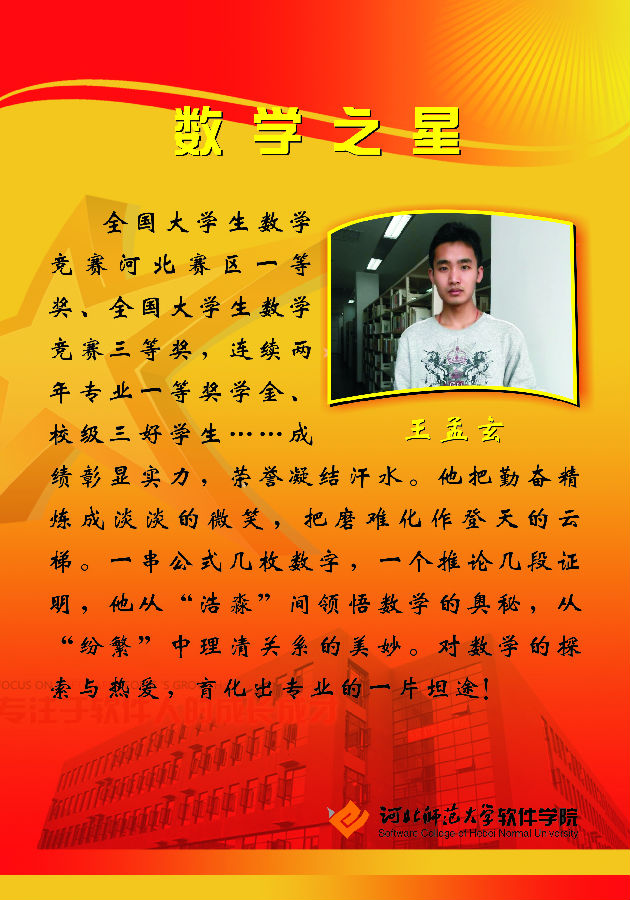 数学之星
全国大学生数学
竞赛河北赛区一等
奖、全国大学生数学
竞赛三等奖，连续两
年专业一等奖学金、
校级三好学生……成
王孟玄
绩彰显实力，荣誉凝结汗水。他把勤奋精
炼成淡淡的微笑，把磨难化作登天的云
梯。一串公式几枚数字，一个推论几段证
明，他从“浩淼”间领悟数学的奥秘，从
“纷繁”中理清关系的美妙。对数学的探
索与热爱，育化出专业的一片坦途！
FOCUS ON
专注于软件人的成长成功
河北师范大学软件学院
Software College of Hebei Normal University